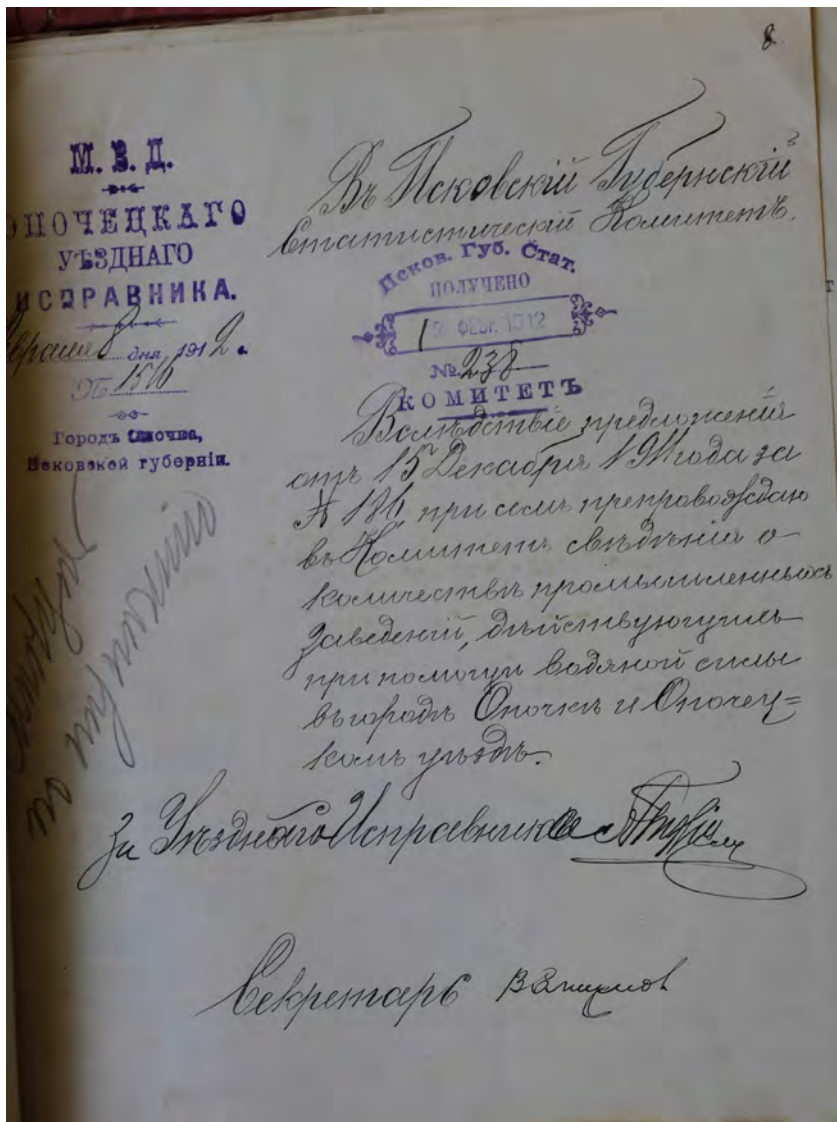 8.
М. В. Д.
ОПОЧЕЦКАГО
УѢЗДНАГО
ИСПРАВНИКА.
Февраля 8 дня 1912 г.
№ 1516
Городъ Опочка,
Псковской губерніи.
Въ Псковскій Губернскій
Статистическій Комитетъ.
Псков. Губ. Стат.
ПОЛУЧЕНО
12 ФЕВР. 1912
№ 238
КОМИТЕТЪ
Вслѣдствіе предложенія
отъ 15 Декабря 1911 года за
№ 136, при семъ препровождаю
въ Комитетъ свѣдѣнія о
количествѣ промышленныхъ
заведеній, дѣйствующихъ
при помощи водяной силы
въ городѣ Опочкѣ и Опочец=
комъ уѣздѣ.
За Уѣзднаго Исправника
Секретарь